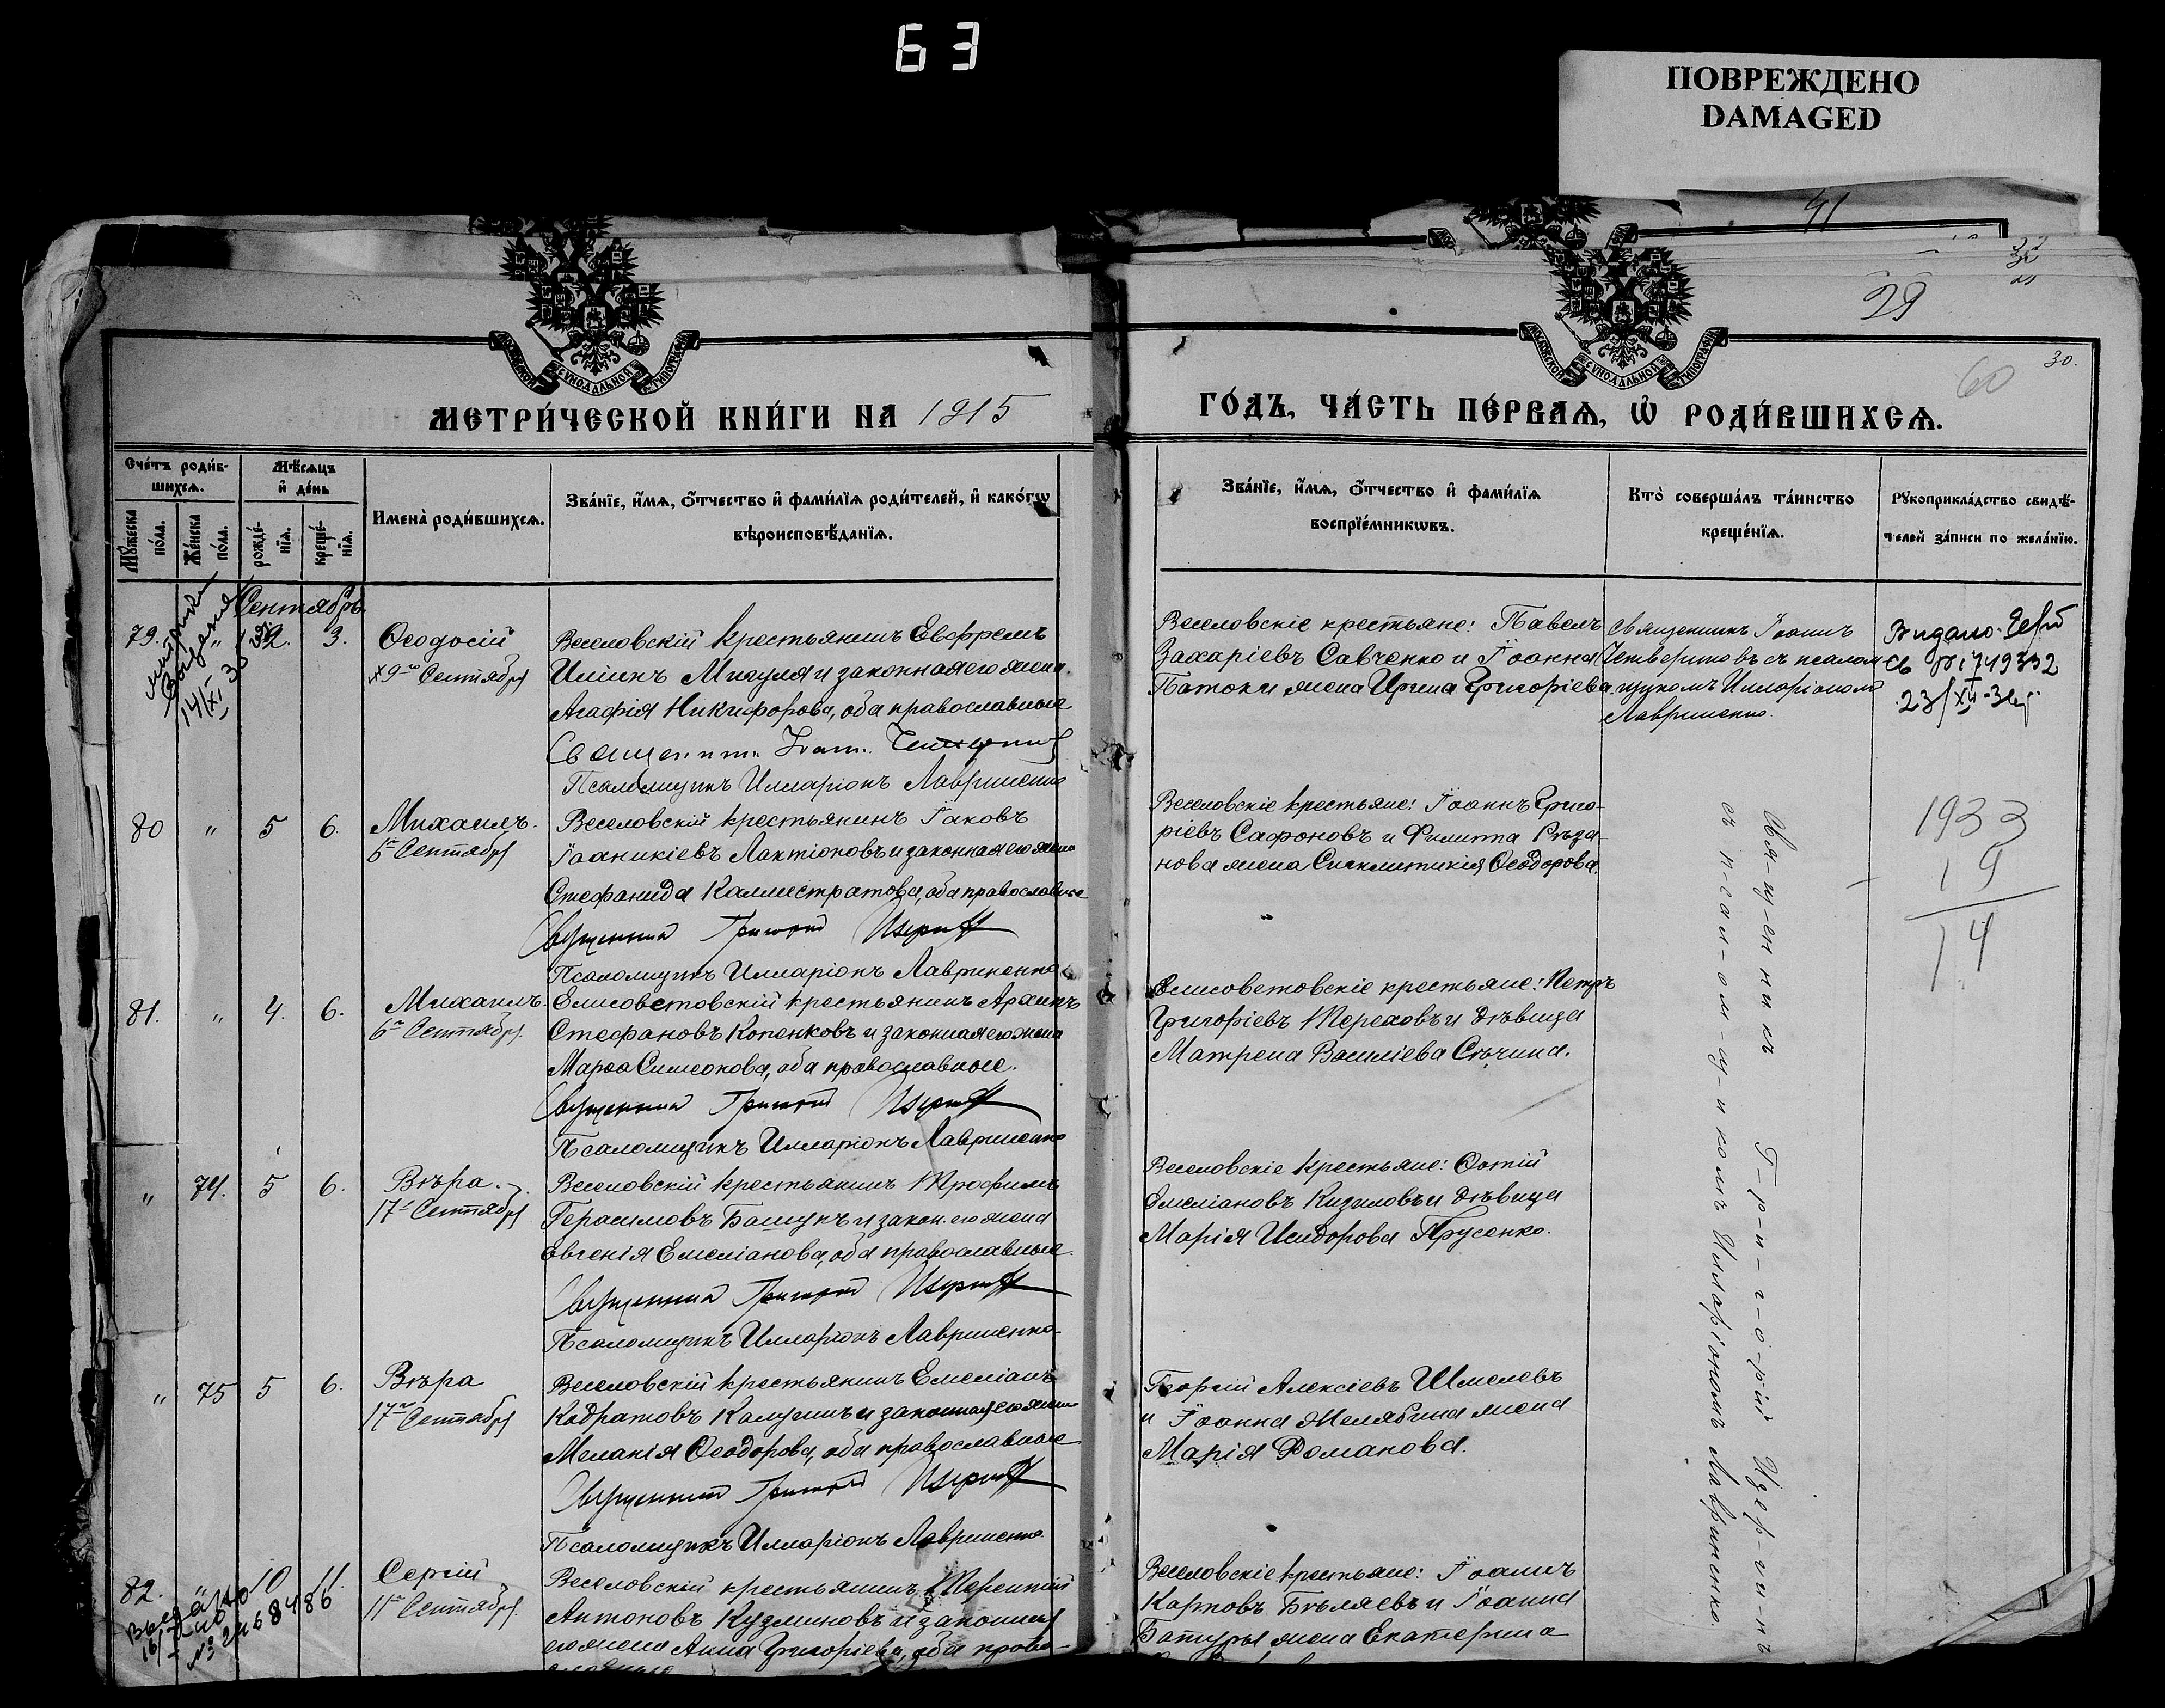 63
ПОВРЕЖДЕНО
DAMAGED
41
29
60
30.
МОСКОВСКОЙ СУНОДАЛЬНОЙ ТИПОГРАФІИ
МОСКОВСКОЙ СУНОДАЛЬНОЙ ТИПОГРАФІИ
МЕТРИ́ЧЕСКОЙ КНИ́ГИ НА 1915
ГО́ДЪ, ЧА́СТЬ ПЕ́РВАѦ, Ѡ҆ РОДИ́ВШИХСѦ.
Сче́тъ роди́в-
шихсѧ.
Мѣ́сѧцъ
и҆ де́нь
Мꙋ́жеска по́ла.
Же́нска по́ла.
рожде́-нїѧ.
креще́-нїѧ.
И҆мена̀ роди́вшихсѧ.
Зва́нїе, и҆́мѧ, ѻ҆́тчество и҆ фами́лїѧ роди́телей, и҆ како́гѡ
вѣроисповѣ́данїѧ.
Зва́нїе, и҆́мѧ, ѻ҆́тчество и҆ фами́лїѧ
воспрїе́мникѡвъ.
Кто̀ соверша́лъ та́инство
креще́нїѧ.
Рꙋкоприкла́дство свидѣ́-
телей за́писи по жела́нїю.
Сентябрь
79. " 2. 3. Ѳеодосій
9го Сентября
Веселовскій крестьянинъ Евфремъ
Иліинъ Мигуля и законная его жена
Агафія Никифорова, оба православные
Псаломщикъ Илларіонъ Лавриненко
Веселовскіе крестьяне: Павелъ
Захаріевъ Савченко и Іоанна
Патоки жена Ирина Григоріева.
Священникъ Іоаннъ
Четвериковъ съ псалом-
щикомъ Илларіономъ
Лавриненко.
80 " 5 6. Михаилъ.
6го Сентября
Веселовскій крестьянинъ Іаковъ
Іоанникіевъ Лактіоновъ и законная его жена
Стефанида Каллистратова, оба православные
Священникъ Григорій
Псаломщикъ Илларіонъ Лавриненко
Веселовскіе крестьяне: Іоаннъ Григо-
ріевъ Сафоновъ и Филиппа Рѣза-
нова жена Синклитикія Ѳеодорова.
1933
19
14
81. " 4. 6. Михаилъ.
6го Сентября.
Елисоветовскій крестьянинъ Архипъ
Стефановъ Копенковъ и законная его жена
Марѳа Симеонова, оба православные.
Священникъ Григорій
Псаломщикъ Илларіонъ Лавриненко
Елисоветовскіе крестьяне: Петръ
Григоріевъ Тереховъ и дѣвица
Матрена Василіева Сѣчина.
" 74. 5 6. Вѣра.
17го Сентября
Веселовскій крестьянинъ Трофимъ
Герасимовъ Башукъ и закон. его жена
Евгенія Емеліанова, оба православные.
Священникъ Григорій
Псаломщикъ Илларіонъ Лавриненко
Веселовскіе крестьяне: Фотій
Емеліановъ Кизиловъ и дѣвица
Марія Исидорова Прусенко.
" 75 5 6. Вѣра
17го Сентября
Веселовскій крестьянинъ Емеліанъ
Кодратовъ Калугинъ и законная его жена
Меланія Ѳеодорова, оба православные
Священникъ Григорій
Псаломщикъ Илларіонъ Лавриненко
Георгій Алексіевъ Шмелевъ
и Іоанна Желябина жена
Марія Романова.
Священникъ Григорій
съ псаломщикомъ Илларіономъ Лавриненко.
82. " 10 11. Сергій
11го Сентября.
Веселовскій крестьянинъ Терентій
Антоновъ Кузминовъ и законная
его жена Анна Григоріева, оба право-
Веселовскіе крестьяне: Іоаннъ
Карповъ Бѣляевъ и Іоанна
Батуры жена Екатерина